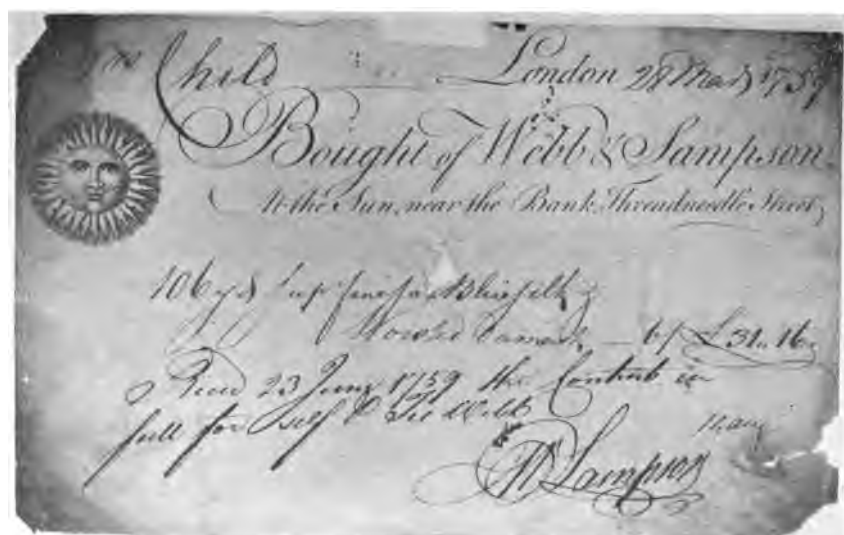 Child London 28 March 1759
Bought of Webb & Sampson
At the Sun, near the Bank Threadneedle Street
106 yds Supr fine Blue silk &
Worsted Damask — 6/ £31.. 16..
Recd 23 June 1759 the Contents in
full for self & Webb
Sampson